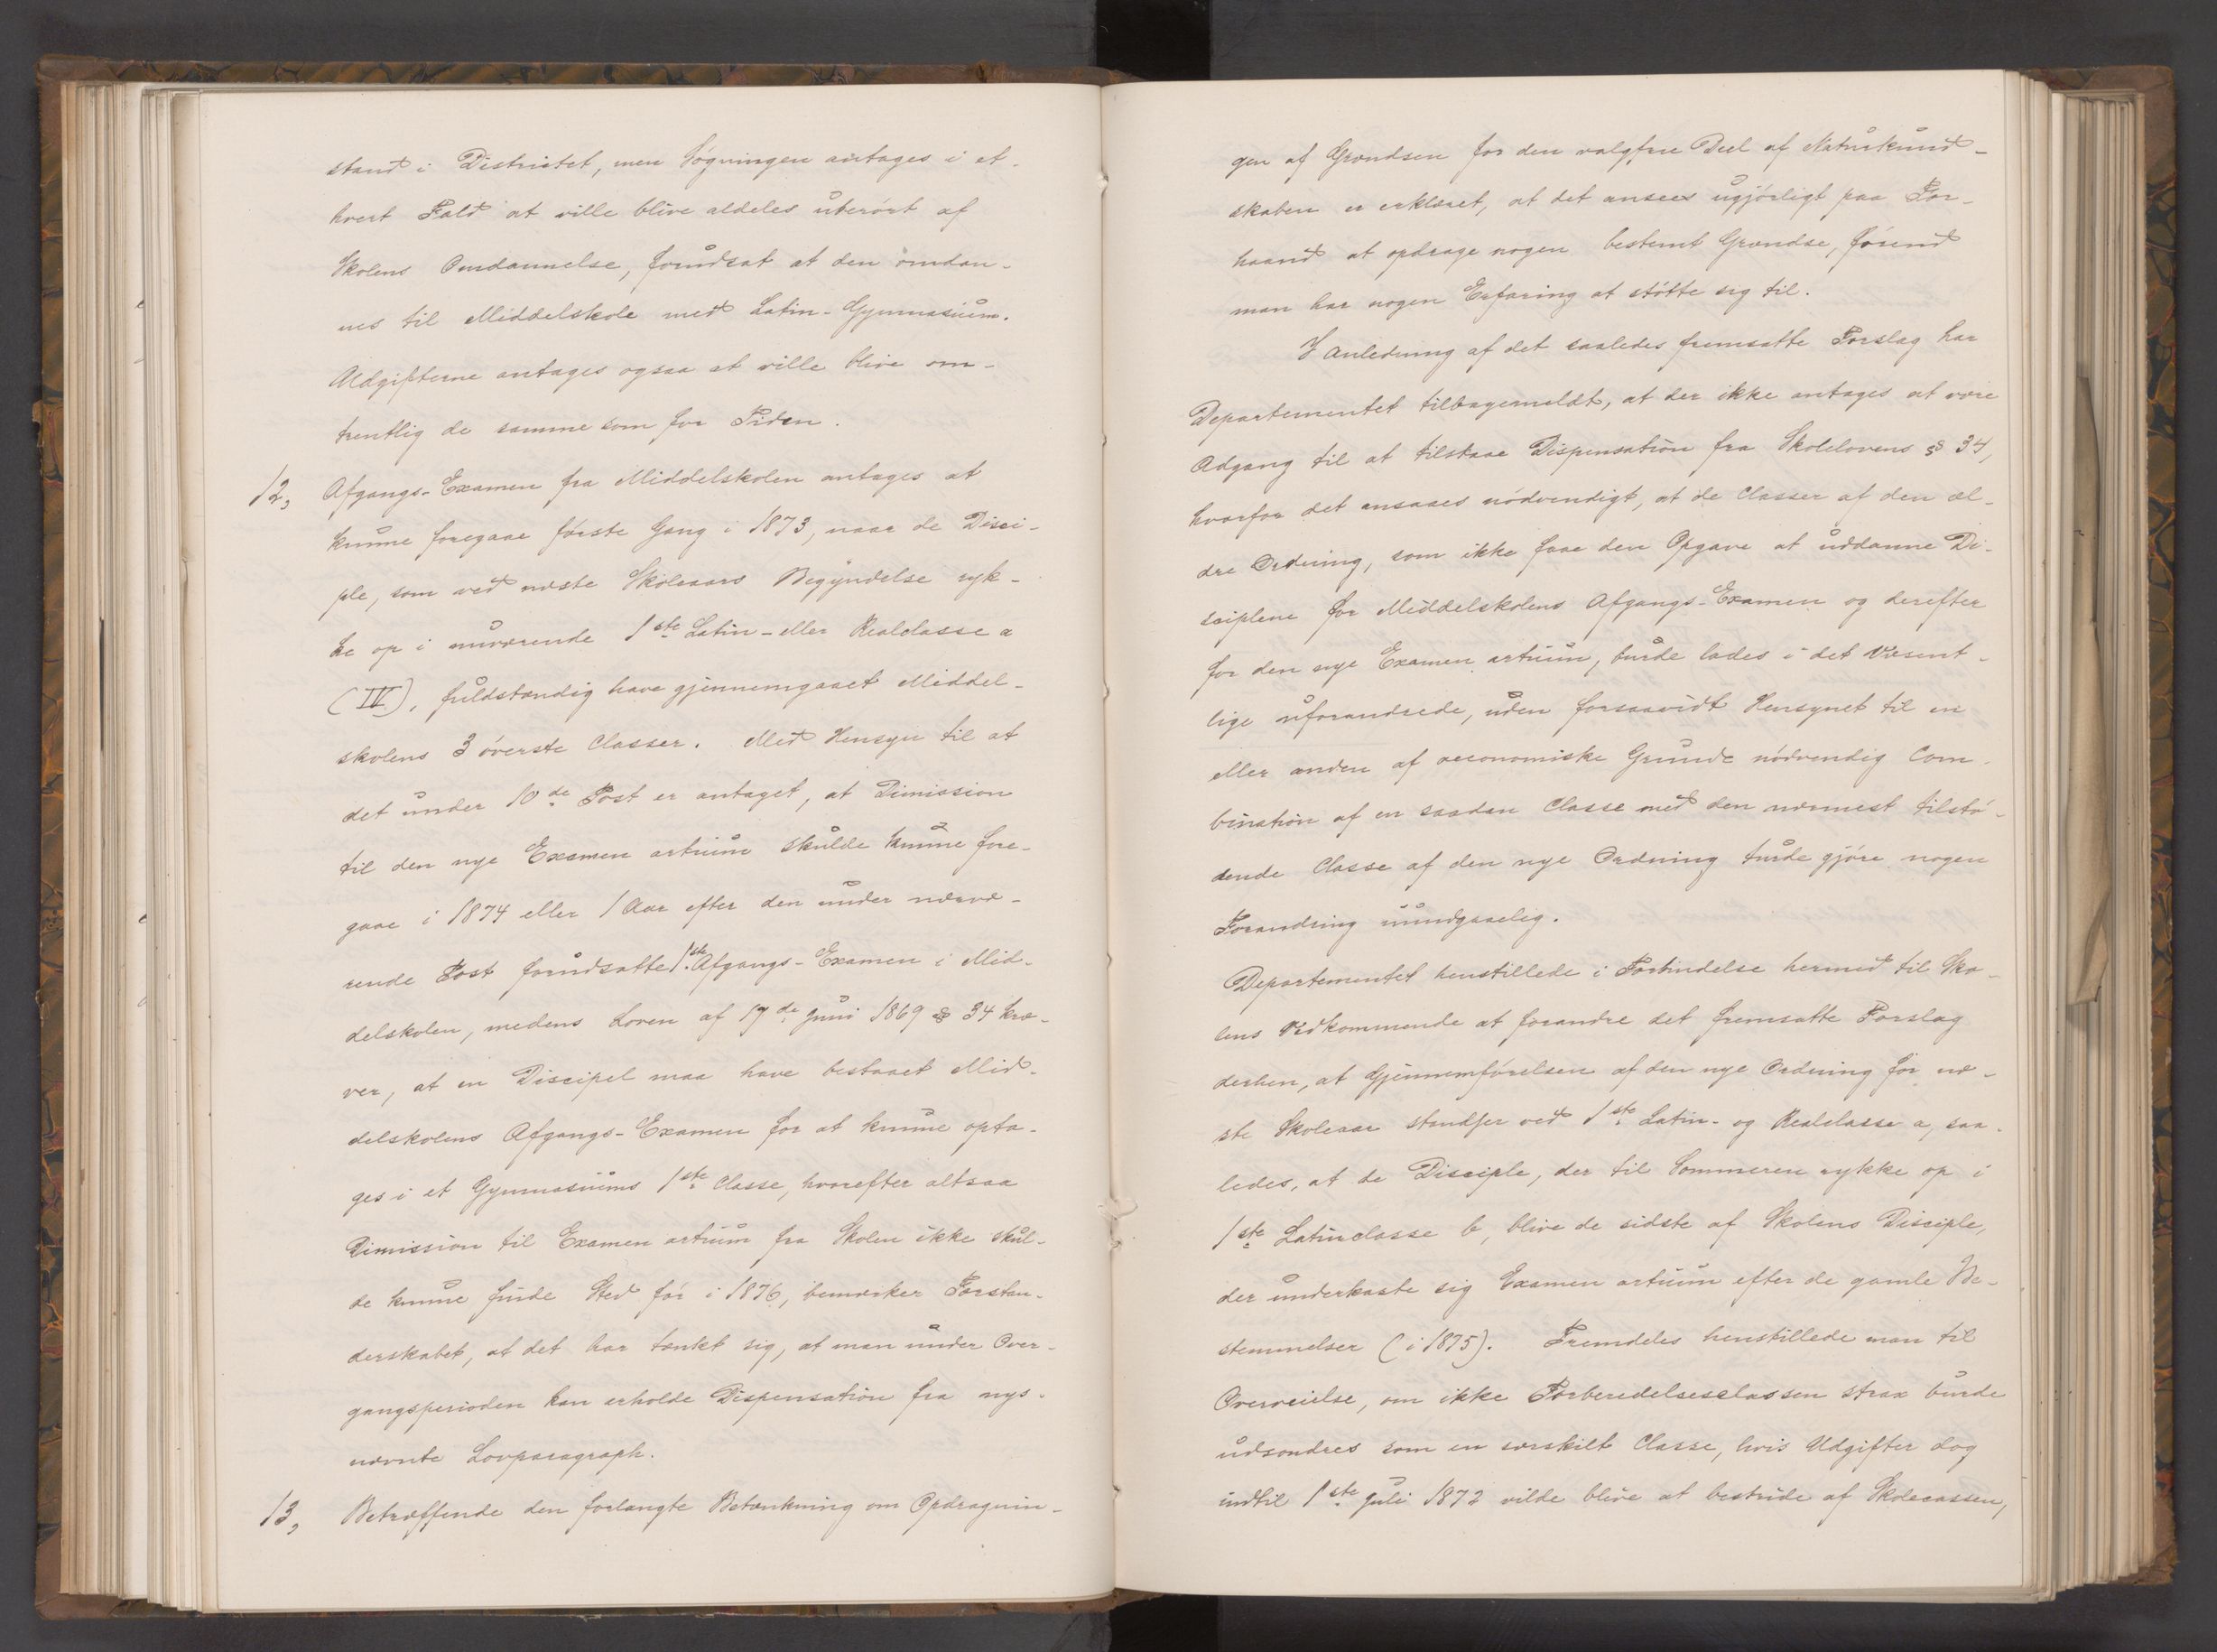 stand i Districtet, men Søgningen antages i et-
hvert Fald at ville blive aldeles uberørt af
Skolens Omdannelse, forudsat at den omdan-
nes til Middelskole med Latin-Gymnasium.
Udgifterne antages ogsaa at ville blive om-
trentlig de samme som for Tiden.
12, Afgangs-Examen fra Middelskolen antages at
kunne foregaae første Gang i 1873, naar de Disci-
ple, som ved næste Skoleaars Begyndelse ryk-
ke op i nuværende 1ste Latin- eller Realclasse a
(IV), fuldstændig have gjennemgaaet Middel-
skolens 3 øverste Classer. Med Hensyn til at
det under 10de Post er antaget, at Dimission
til den nye Examen artium skulde kunne fore-
gaae i 1874 eller 1 Aar efter den under nærvæ-
rende Post forudsatte 1ste Afgangs-Examen i Mid-
delskolen, medens Loven af 17de Juni 1869 § 34 kræ-
ver, at en Discipel maa have bestaaet Mid-
delskolens Afgangs-Examen for at kunne opta-
ges i et Gymnasiums 1ste Classe, hvorefter altsaa
Dimission til Examen artium fra Skolen ikke skul-
de kunne finde Sted før i 1876, bemærker Forstan-
derskabet, at det har tænkt sig, at man under Over-
gangsperioden kan erholde Dispensation fra nys-
nævnte Lovparagraph.
13, Betræffende den forlangte Betænkning om Opdragnin-
gen af Grændsen for den valgfrie Deel af Naturkund-
skaben er erklæret, at det ansees ugjørligt paa For-
haand at opdrage nogen bestemt Grændse, førend
man har nogen Erfaring at støtte sig til.
I Anledning af det saaledes fremsatte Forslag har
Departementet tilbagemeldt, at der ikke antages at være
Adgang til at tilstaae Dispensation fra Skolelovens § 34,
hvorfor det ansaaes nødvendigt, at de Classer af den æl-
dre Ordning, som ikke faae den Opgave at uddanne Di-
sciplene for Middelskolens Afgangs-Examen og derefter
for den nye Examen artium, burde lades i det Væsent-
lige uforandrede, uden forsaavidt Hensynet til en
eller anden af oeconomiske Grunde nødvendig Com-
bination af en saadan Classe med den nærmest tilstø-
dende Classe af den nye Ordning turde gjøre nogen
Forandring uundgaaelig.
Departementet henstillede i Forbindelse hermed til Sko-
lens Vedkommende at forandre det fremsatte Forslag
derhen, at Gjennemførelsen af den nye Ordning for næ-
ste Skoleaar standser ved 1ste Latin- og Realclasse a, saa-
ledes, at de Disciple, der til Sommeren rykke op i
1ste Latinclasse b, blive de sidste af Skolens Disciple,
der underkaste sig Examen artium efter de gamle Be-
stemmelser (i 1875). Fremdeles henstillede man til
Overveielse, om ikke Forberedelsesclassen strax burde
udsondres som en særskilt Classe, hvis Udgifter dog
indtil 1ste Juli 1872 vilde blive at bestride af Skolecassen,